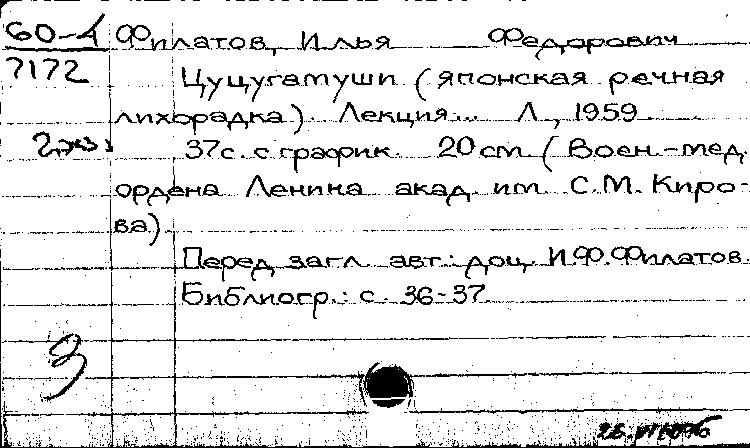 60-4 Филатов, Илья Федорович
7172 Цуцугамуши (японская речная
лихорадка). Лекция... Л., 1959.
2экз. 37с. с график. 20 см (Воен.-мед.
ордена Ленина акад. им. С.М. Киро-
ва).
Перед загл. авт.: доц. И.Ф. Филатов.
Библиогр.: с. 36-37.
З